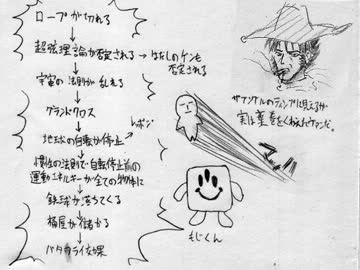 ロープが切れる
超弦理論が否定される → はなしのケンも
否定される
宇宙の法則が乱れる
グランドクロス
地球の自転が停止
レボン
慣性の法則で自転停止前の
運動エネルギーが全ての物体に
鉄球が落ちてくる
桶屋が儲かる
バタフライ効果
実は葉巻をくわえたケンだ。
もじくん